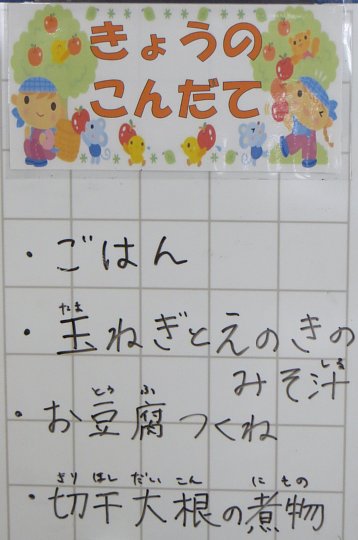 きょうの
こんだて
・ごはん
たま
・玉ねぎとえのきの
しる
みそ汁
とう ふ
・お豆腐つくね
きり ほし だい こん に もの
・切干大根の煮物